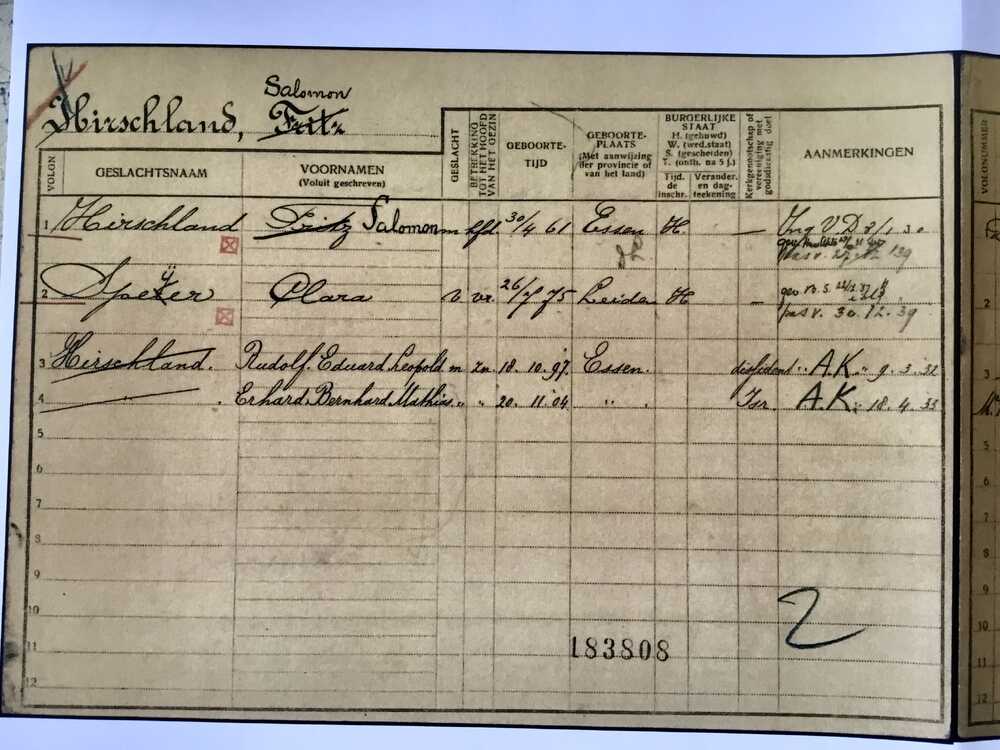 Salomon
Hirschland, Fritz
VOLGN
GESLACHTSNAAM
VOORNAMEN
(Voluit geschreven)
GESLACHT
BETREKKING
TOT HET HOOFD
VAN HET GEZIN
GEBOORTE-
TIJD
GEBOORTE-
PLAATS
(Met aanwijzing
der provincie of
van het land)
BURGERLIJKE
STAAT
H. (gehuwd)
W. (wed.staat)
S. (gescheiden)
T. (onth. na 5 j.)
Tijd.
de
inschr.
Verander.
en dag-
teekening
Kerkgenootschap of
vereeniging met
godsdienstig doel
AANMERKINGEN
VOLGNUMMER
1 Hirschland Fritz Salomon m hfd 30/4 61 Essen H — Ing V.D 8/1 30
pas v. 39
2 Speyer Clara v vr. 26/7 75 Leiden H —
pas v. 30.12.39
3 Hirschland. Rudolf. Eduard. Leopold m zn. 18.10.97. Essen. dissident „ A.K. „ 9.3.32 3
4 . Erhard. Bernhard. Mathias „ „ 20.11.04 „ . Isr. A.K. 18.4.33
5 5
6 6
7 7
8
9 9
10 10
11 183808 11
12 12
2